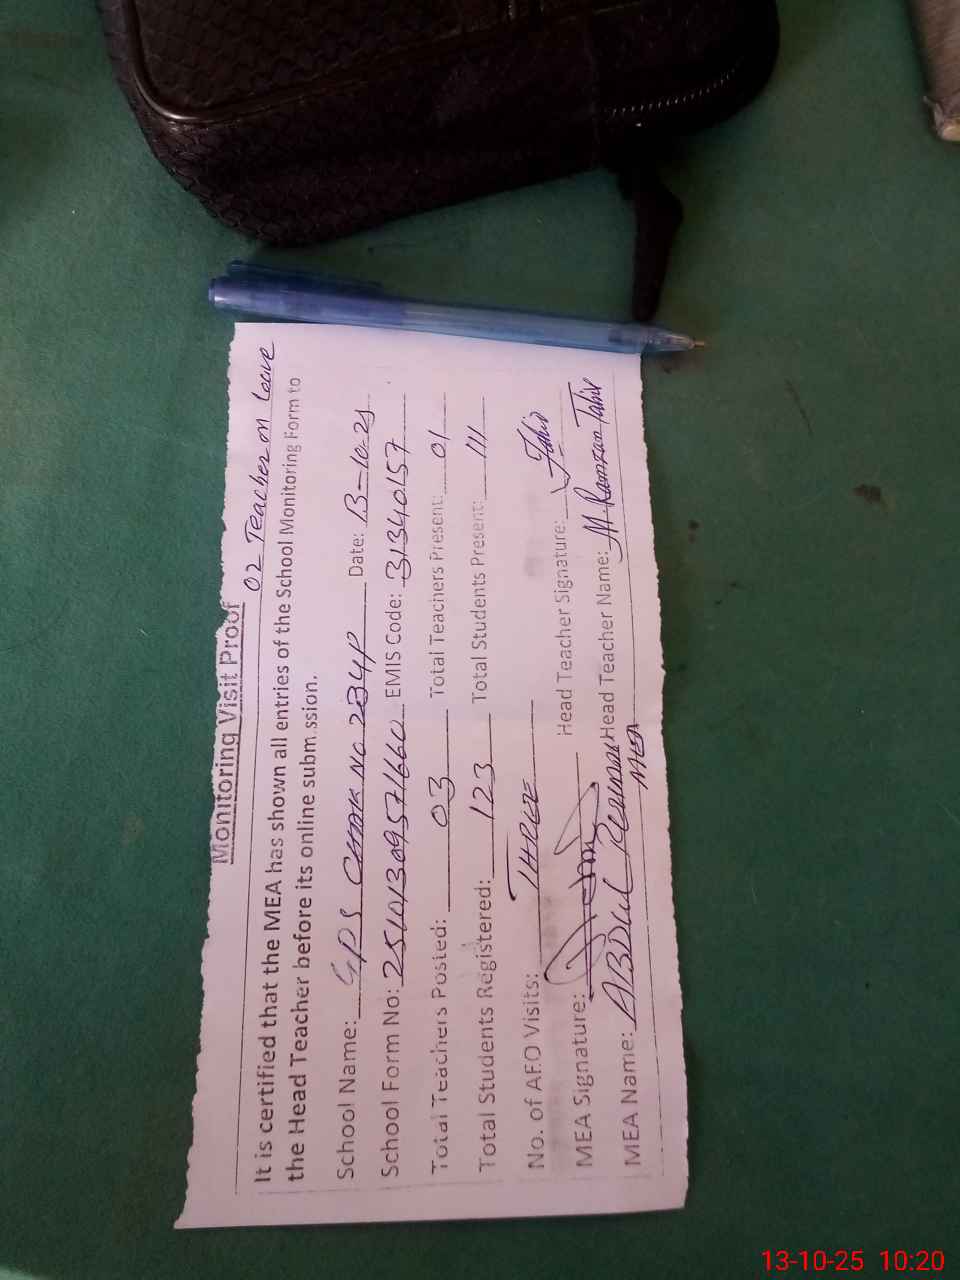 Monitoring Visit Proof
02 Teacher on leave
It is certified that the MEA has shown all entries of the School Monitoring Form to
the Head Teacher before its online submission.
School Name: GPS CHAK No 234P Date: 13-10-25
School Form No: EMIS Code: 31340157
Total Teachers Posted: 03 Total Teachers Present: 01
Total Students Registered: 123 Total Students Present: 111
No. of AEO Visits: THREE
MEA Signature: Head Teacher Signature:
MEA Name: ABDUL Head Teacher Name: M Ramzan Tahir
MEA
13-10-25 10:20